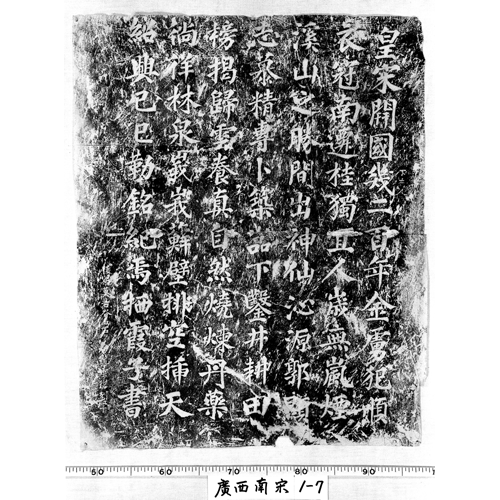 皇宋開國幾二百年金虜犯順
衣冠南遷桂獨五人歲無嵐煙
溪山之勝間出神仙沁源郭顯
志慕精專卜築嵒下鑿井耕田
榜揭歸雲養真自然燒煉丹藥
徜徉林泉巖巖蘚壁排空插天
紹興己巳勒銘紀焉栖霞子書
50 60 70 80 90
廣西南宋 1-7